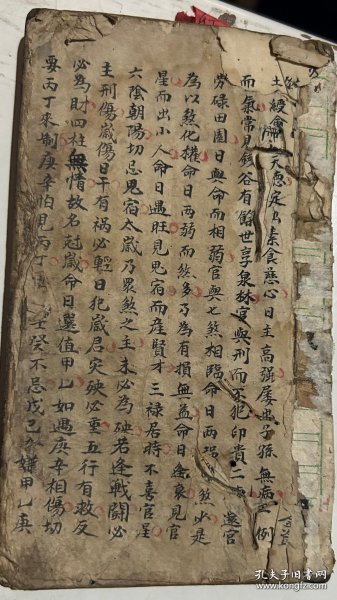 土 綬會 天惠定为素食慈心日主高强屡出子孫無病 例
而氣常見錢谷有餘世享泉林官與刑而不犯印貴二 遠官
勞碌田園日與命而相弱官與七煞相臨命日两 煞少是
為以煞化權命日两弱而煞多乃為有損無益命日逢衰見官
星而出小人命日遇旺見鬼宿而産賢才三禄居時不喜官星
六陰朝陽切忌鬼宿太歲乃衆煞之主未必為殃若逢戰鬭必
主刑傷歲傷日干有禍必輕日犯歲君灾殃必重五行有救反
必為財四柱無情故名尅歲命日還值甲乙如遇庚辛相傷切
要丙丁來制庚辛怕見丙丁 壬癸不忌戊己 嫌甲乙庚
孔夫子旧书网